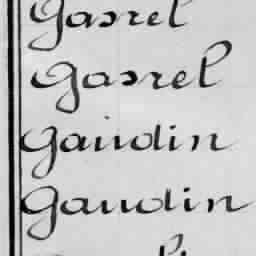 Gasrel
Gasrel
Gaudin
Gaudin